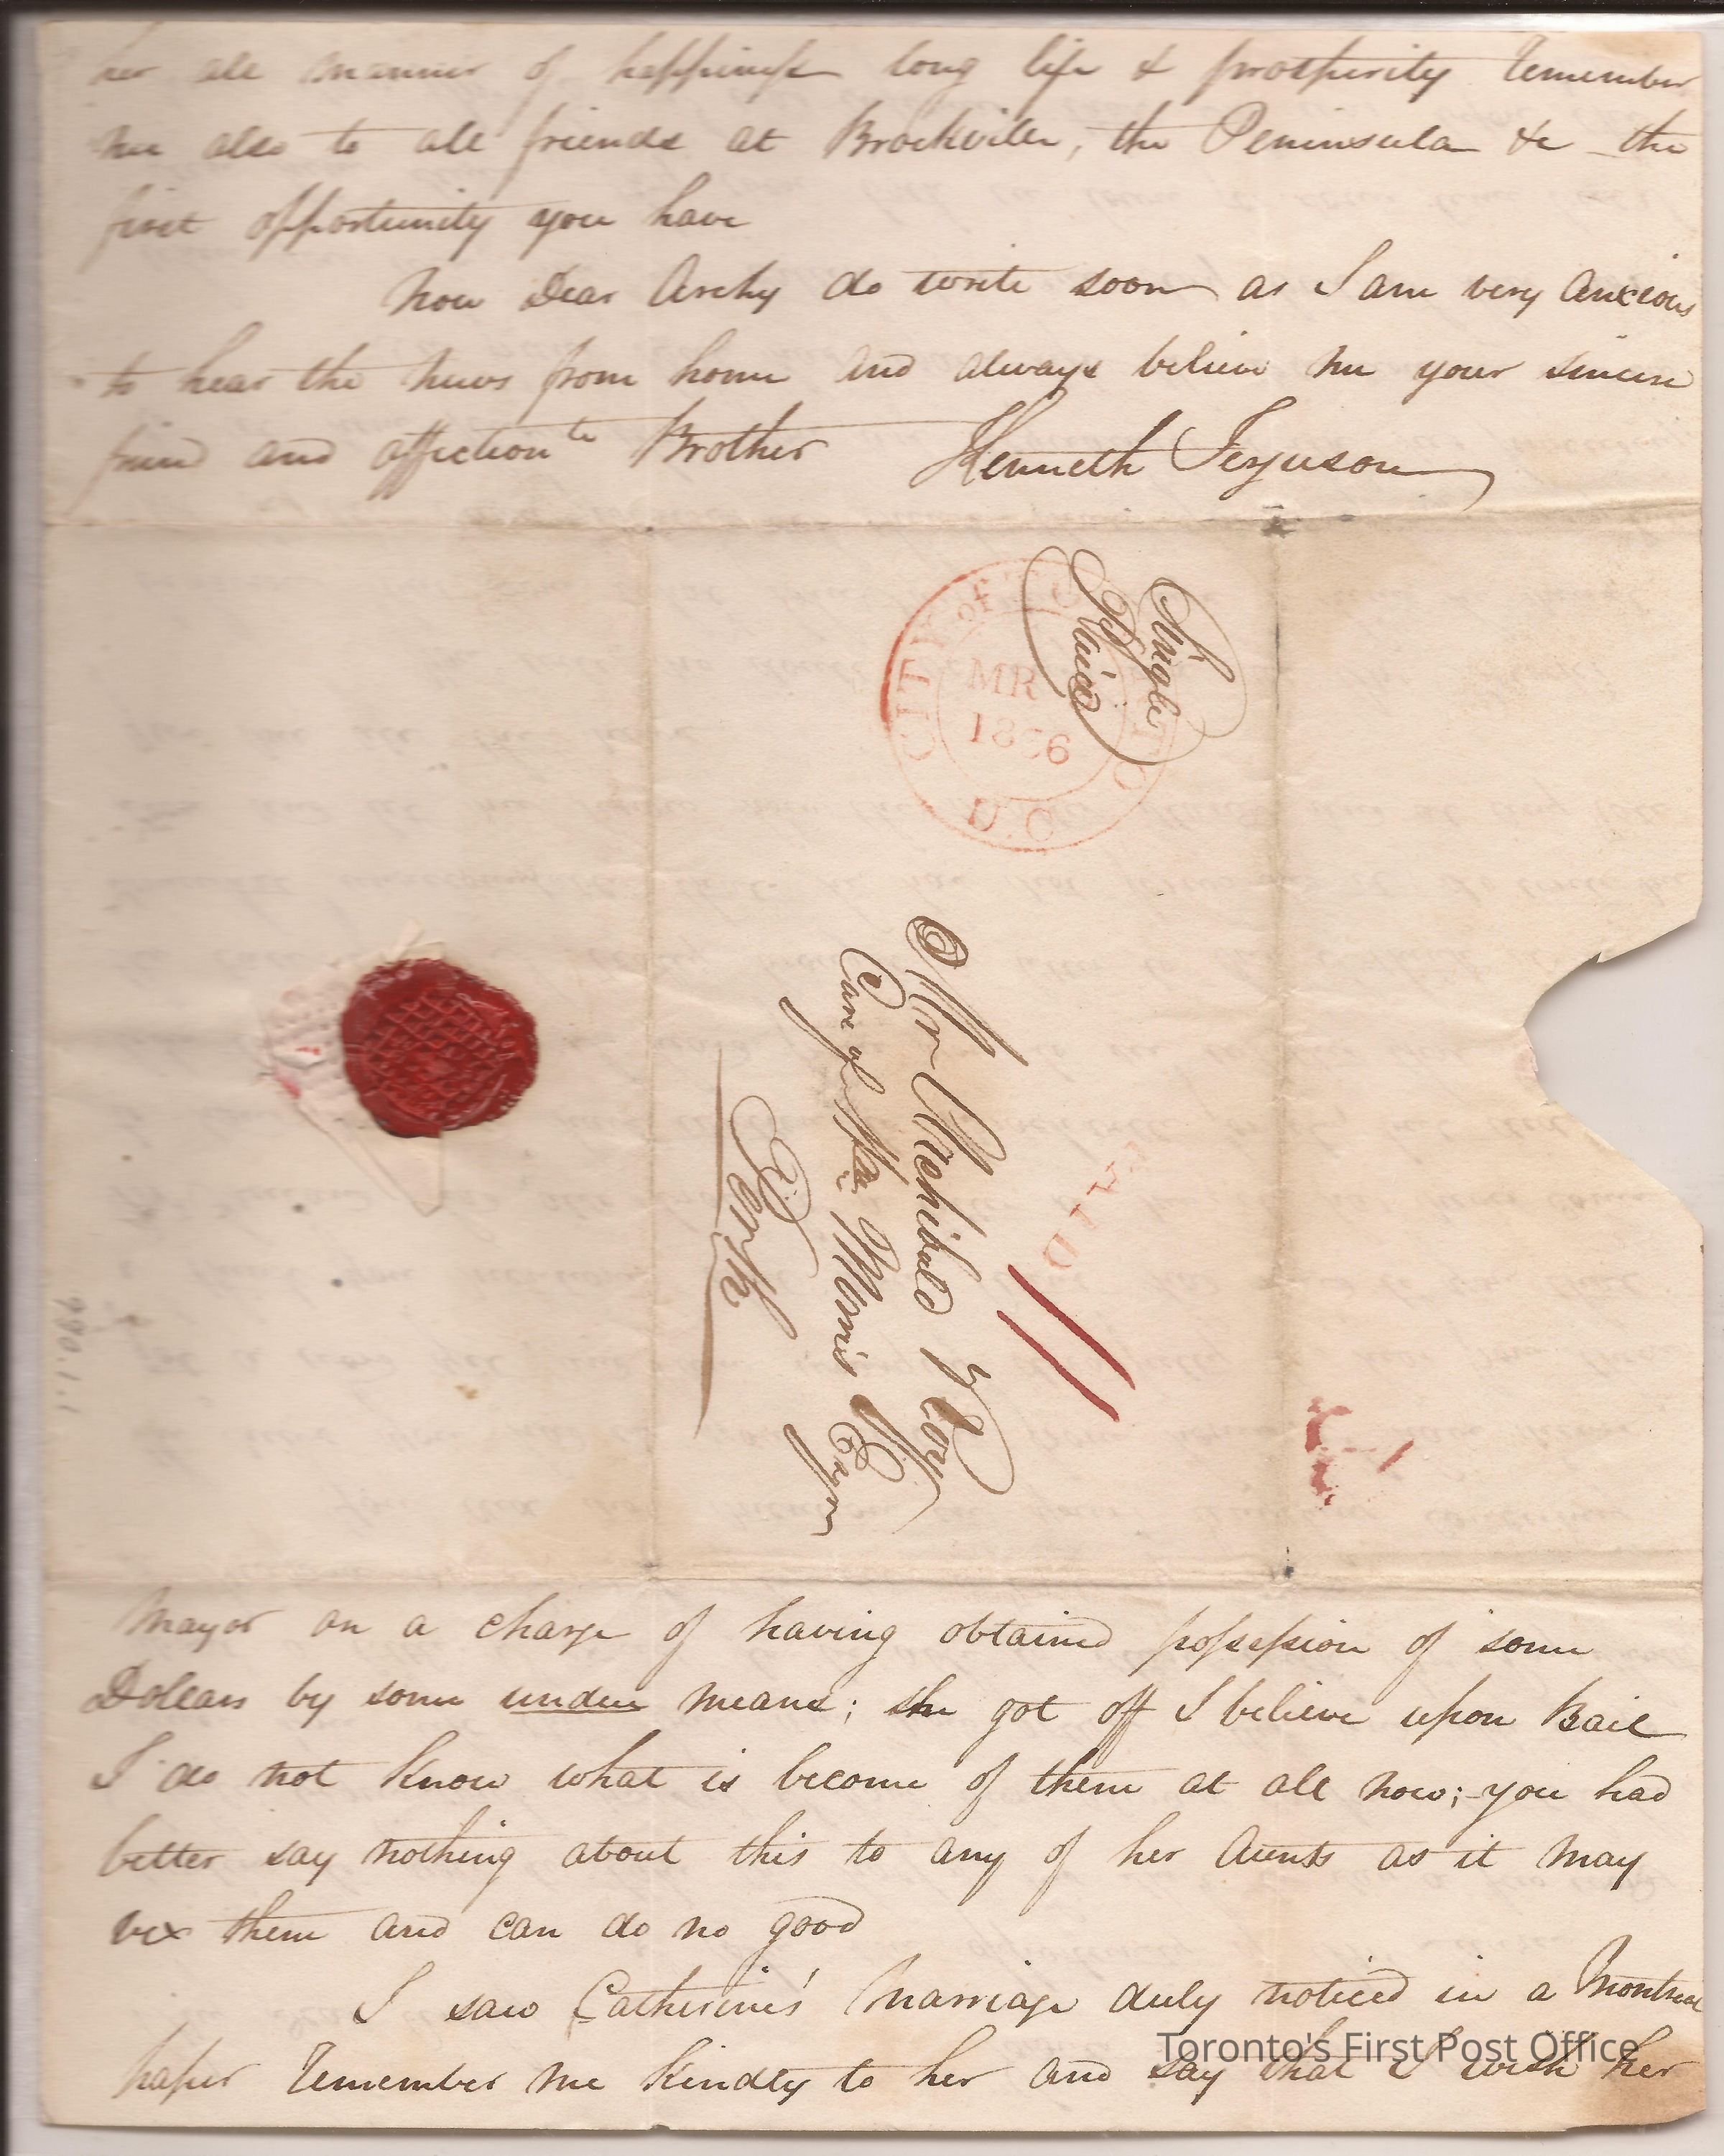 her all manner of happiness long life & prosperity Remember
me also to all friends at Brockville, the Peninsula &c the
first opportunity you have
Now Dear Archy do write soon as I am very anxious
to hear the news from home and always believe me your sincere
friend and affectionte Brother Kenneth Ferguson
Single
Paid
CITY of TO O
MR
1836
U.C
PAID
Mr Archibald
Care of Morris Esqre
Perth
990.1.1
Mayor on a charge of having obtained possession of some
Dollars by some undue means; she got off I believe upon Bail
I do not know what is become of them at all now; you had
better say nothing about this to any of her Aunts as it may
vex them and can do no good
I saw Catherine's Marriage duly noticed in a Montreal
paper Remember me kindly to her and say that I wish her
Toronto's First Post Office